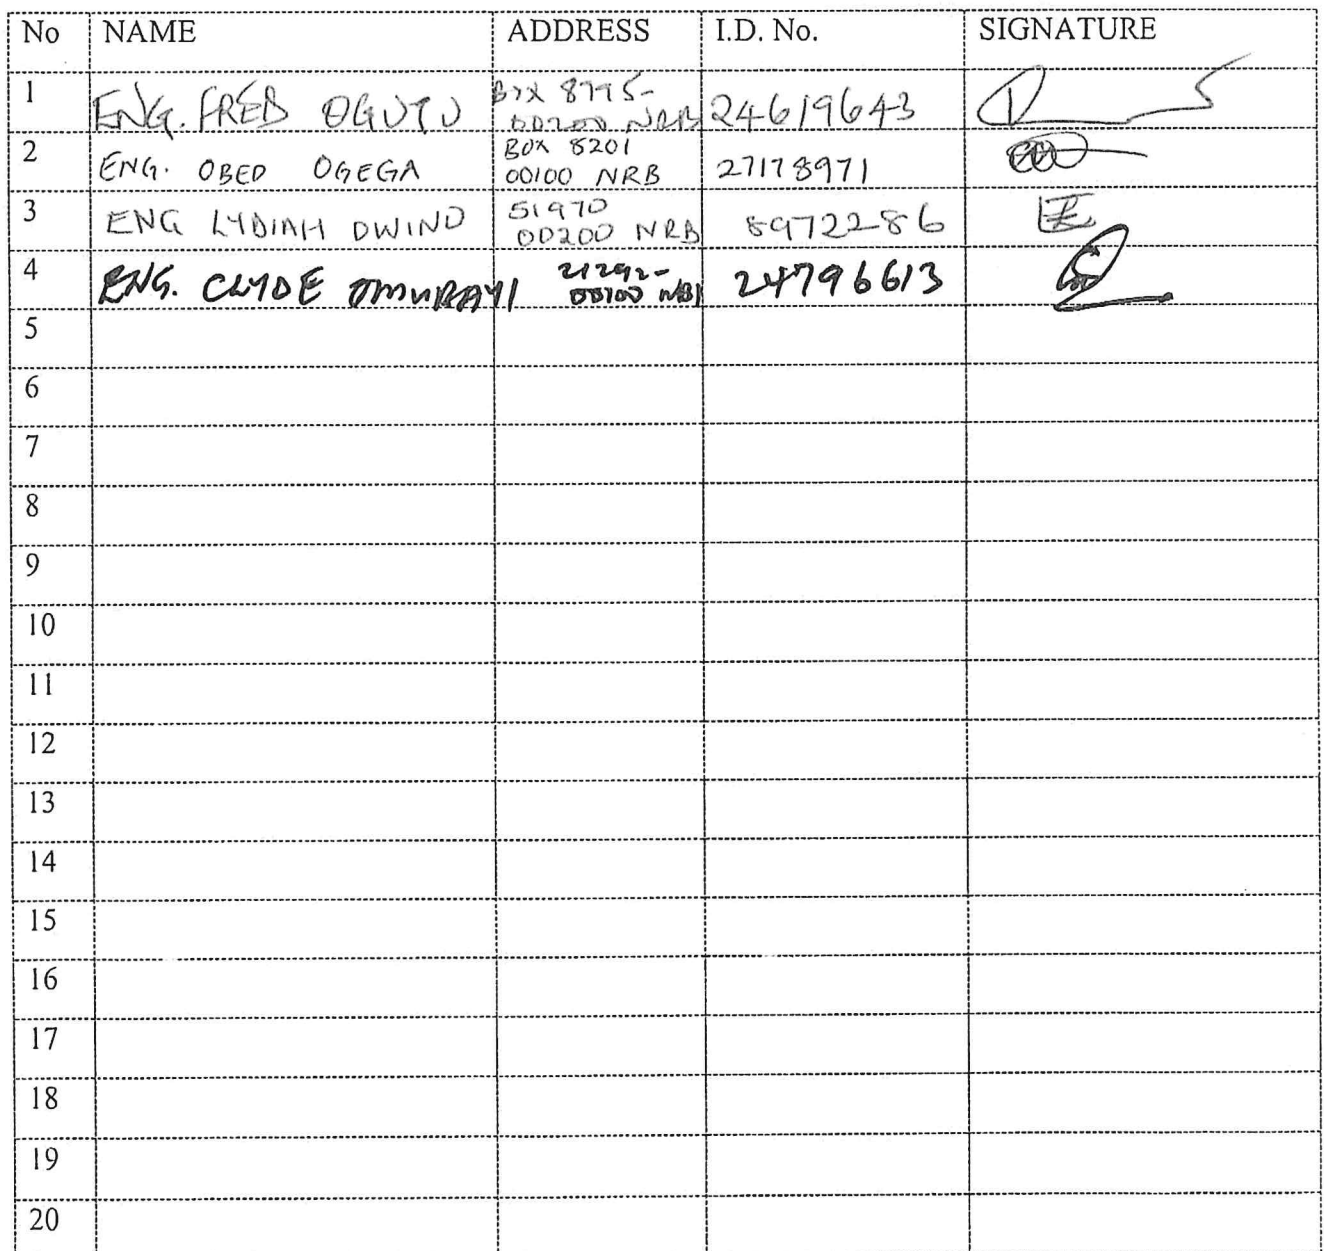 No NAME ADDRESS I.D. No. SIGNATURE
1 ENG. FRED OGUTU BOX 8795- 00200 NRB 24619643
2 ENG. OBED OGEGA BOX 8201 00100 NRB 27178971
3 ENG LYDIAH OWINO 51970 00200 NRB 8972286
4 ENG. CLYDE OMURAYI 21292- 00100 NBI 24796613
5
6
7
8
9
10
11
12
13
14
15
16
17
18
19
20